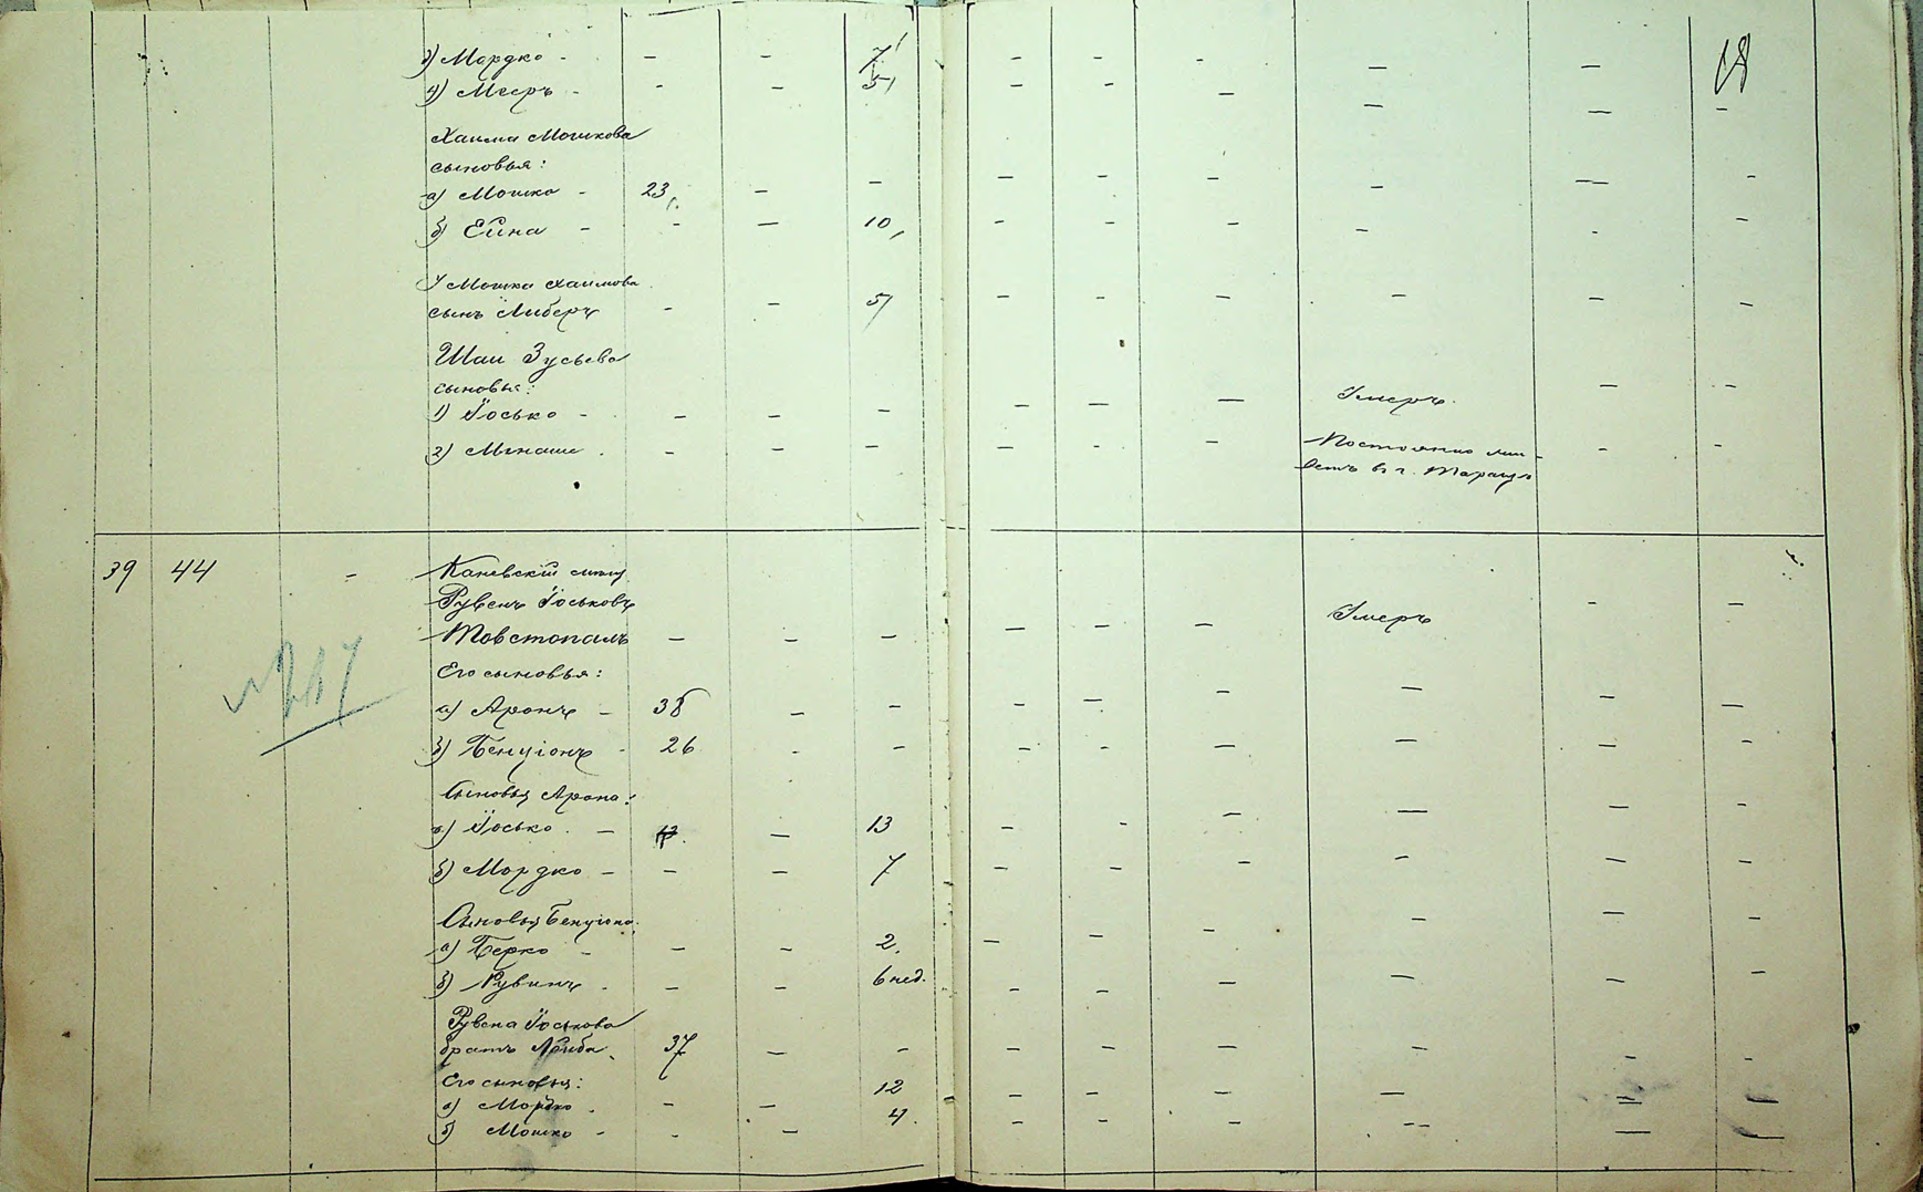 3) Мордко - - - 7
4) Меер - - - 5
Хаима Мошкова
сыновья:
а) Мошко - 23 - -
б) Ейна - - - 10
У Мошка Хаимова
сынъ Либеръ - - 5
Шаи Зусьева
сыновья:
1) Іосько - - - - - - - Умеръ. - -
2) Мënаше - - - - - - Постоянно жи-
ветъ въ г. Таращѣ
39 44 - Каневскій мѣщ.
Рувенъ Іоськовъ
Товстопалъ - - - - - - Умеръ - -
Его сыновья:
а) Аронъ - 38 - -
б) Бенціонъ - 26 - -
№217
Сыновья Арона:
а) Іосько - - 13
б) Мордко - - - 7
Сыновья Бенціона:
а) Берко - - - 2
б) Рувинъ - - - 6 нед.
Рувена Іоськова
братъ Лейба 37 - -
Его сыновья:
а) Мордко - - - 12
б) Мошко - - - 4